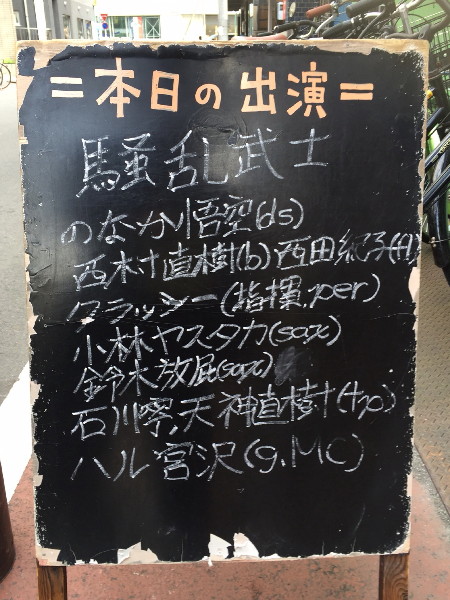 =本日の出演=
騒乱武士
のなか悟空(ds)
西村直樹(b)西田紀子(fl)
クラッシー(指揮.per)
小林ヤスタカ(sax)
鈴木放屁(sax)
石川寧,天神直樹(tp)
ハル宮沢(g.MC)